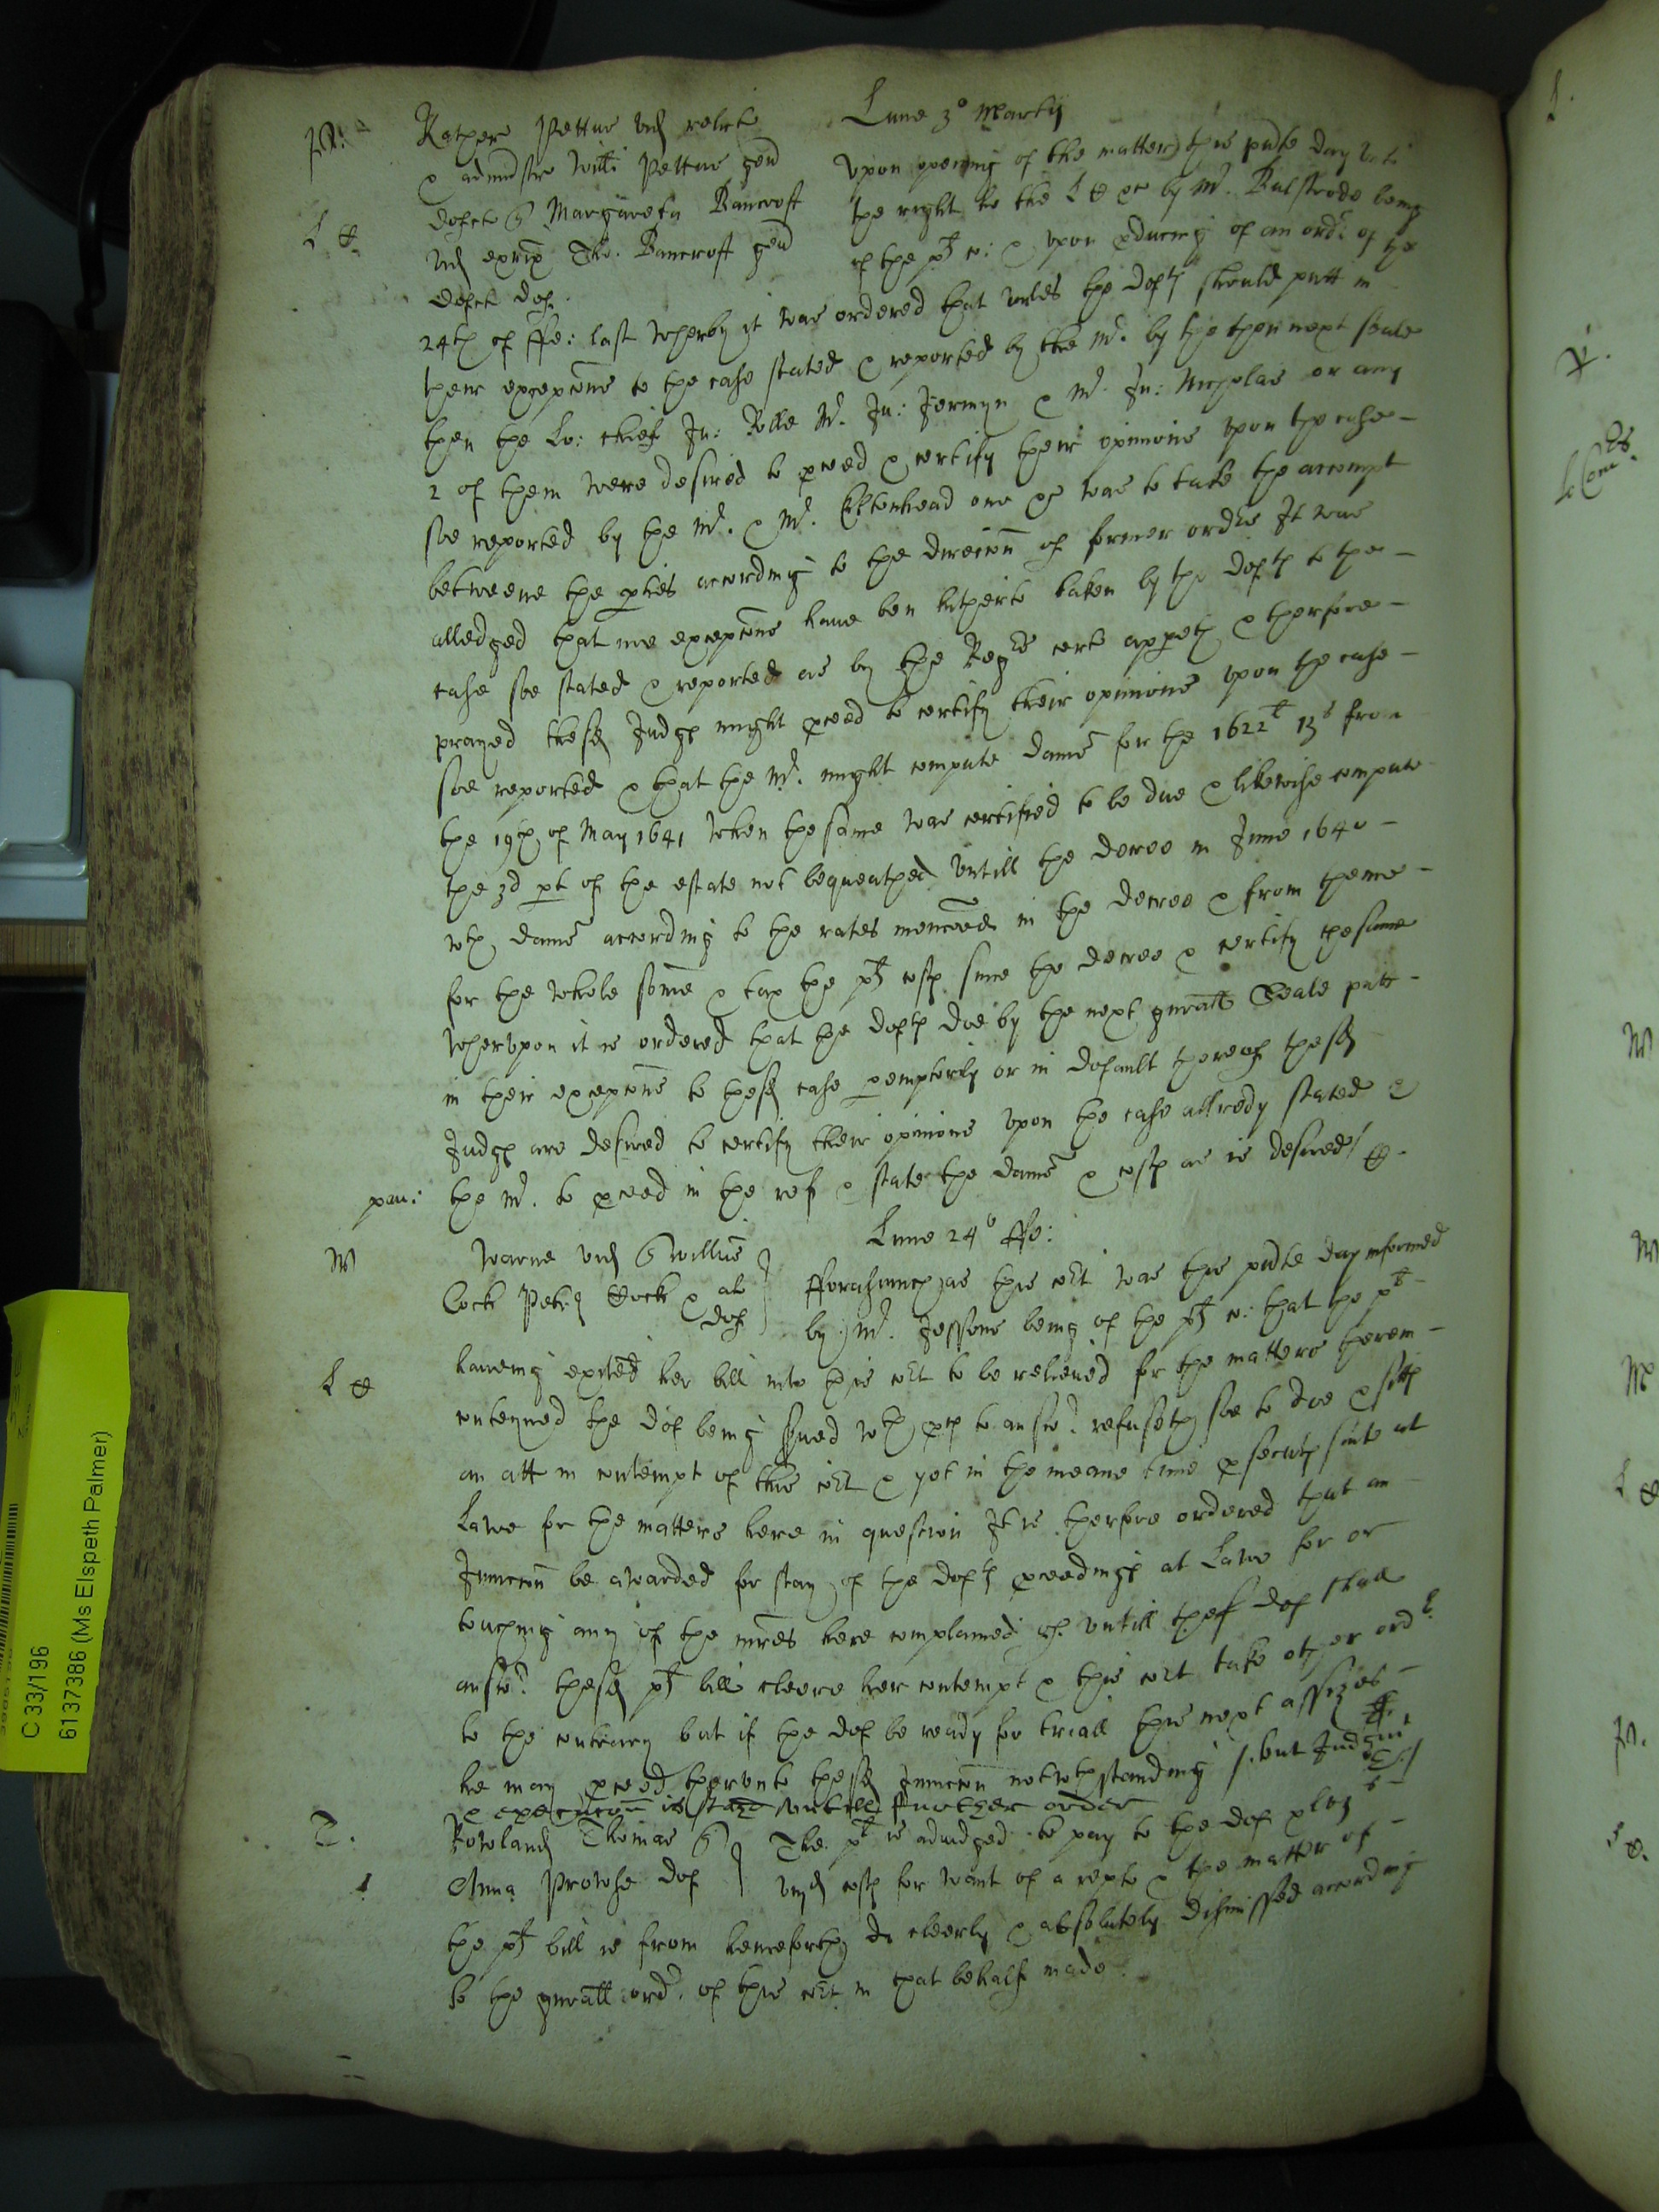 Lune 3o Martij
pe:
Kather Pettus vid relict
& admnstr Willi Pettus gen
defct Margareta Bancroft
vid exrix Tho: Bancroft gen
defct def
L
Upon opening of the matter this pnte day unto
the right ho the L by Mr. Bulstrode being
of the pl co: & upon pducing of an ordr of the
24th of ffe: last wherby it was ordered that unles the defts should putt in
their excepcons to the case stated & reported by the Mr. by the then next seale
then the Lo: chief Ju: Rolle Mr. Ju: Jermyn & Mr. Ju: Nicholas or any
2 of them were desired to pceed & certify their opinions upon the case
soe reported by the Mr. & Mr. Eltonhead one &c was to take the accompt
betweene the pties according to the direcion of former ordrs It was
alledged that noe excepcons have ben hitherto taken by the defts to the
case soe stated & reported as by the Regrs certe appeth & therfore
prayed the sd Judges might pceed to certify their opinions upon the case
soe reported & that the Mr. might compute dams for the 1622l 13s from
the 19th of May 1641 when the same was certified to be due & likewise compute
the 3d pt of the estate not bequeathed untill the decree in June 1640
wth dams according to the rates menconed in the decree & from thence
for the whole some & tax the pl costs since the decree & certify the same
Wherupon it is ordered that the defts doe by the next gnrall Seale putt
in their excepcons to the sd case pemptorily or in default thereof the sd
Judges are desired to certify their opinions upon the case allredy stated &
pan: the Mr. to pceed in the ref & state the dams & costs as is desired
Lune 24o ffe:
W
Warne vid Willus
Cock Peter Cock & al
def
fforasmuch as this cort was this pnte day informed
by Mr. Jessons being of the pl co: that the pl
L
haveing exited her bill into this cort to be releived for the matters therein
conteyned the def being served wth pces to answr. refuseth soe to doe & sitts
an att in contempt of this cort & yet in the meane time psecuts suite at
Lawe for the matters here in question It is therfore ordered that an
Injuncion be awarded for stay of the defts pceedings at Lawe for or
touching any of the mres here complained of untill the sd def shall
answr. the sd pl bill cleere her contempt & this cort take other ordr
to the contrary but if the def be ready for triall this next assizes
he may pceed therunto the sd Injuncion notwthstanding but Judgmt
& execucon is stayd untill further order
T.
Rowland Thomas
Anna Prowse def
The pl is adjudged to pay to the def
costs for want of a replc & the matter of
the pl bill is from henceforth cleerly & absolutely dismissed according
to the gnrall ordr. of this cort in that behalf made.
C 33/196
6137386 (Ms Elspeth Palmer)